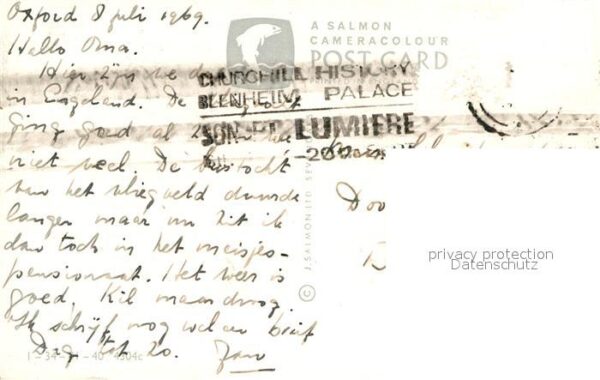 Oxford 8 juli 1969.
Hallo Oma.
Hier zijn we d
in Engeland. De
ging goed al
niet veel. De bustocht
van het vliegveld duurde
langer maar nu zit ik
dan toch in het meisjes-
pensionaat. Het weer is
goed. Kil maar droog.
Ik schrijf nog wel een brief
Dag tot 20. Jan
A SALMON
CAMERACOLOUR
POST CARD
CHURCHILL HISTORY
BLENHEIM PALACE
SON ET LUMIERE
© J. SALMON LTD. SEV
privacy protection
Datenschutz